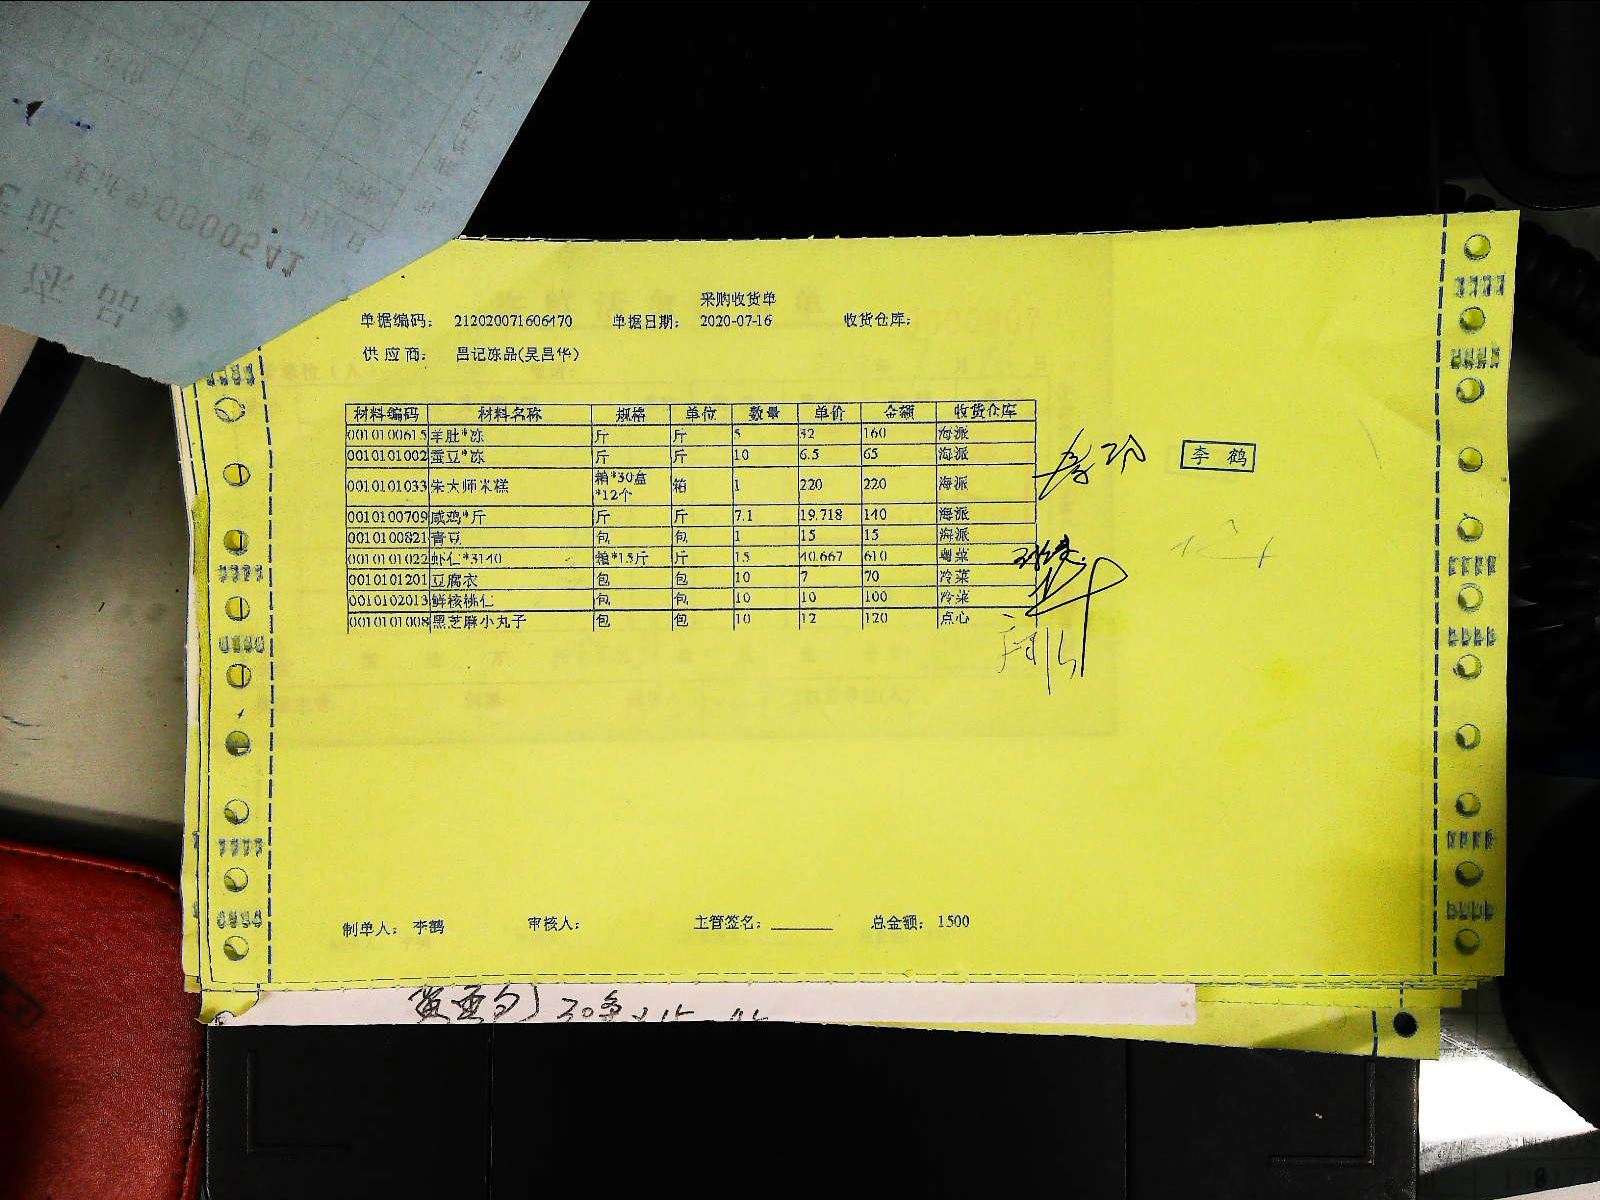 采购收货单
单据编码： 212020071606470 单据日期： 2020-07-16 收货仓库：
供 应 商： 吕记冻品(吴昌华)
材料编码 材料名称 规格 单位 数量 单价 金额 收货仓库
0010100615 羊肚*冻 斤 斤 5 32 160 海派
0010101002 蚕豆*冻 斤 斤 10 6.5 65 海派
0010101033 朱大师米糕 箱*30盒*12个 箱 1 220 220 海派
0010100709 咸鸡*斤 斤 斤 7.1 19.718 140 海派
0010100821 青豆 包 包 1 15 15 海派
0010101022 虾仁*3140 箱*15斤 斤 15 40.667 610 粤菜
0010101201 豆腐衣 包 包 10 7 70 冷菜
0010102013 鲜核桃仁 包 包 10 10 100 冷菜
0010101008 黑芝麻小丸子 包 包 10 12 120 点心
李 鹤
制单人： 李鹤 审核人： 主管签名： 总金额： 1500